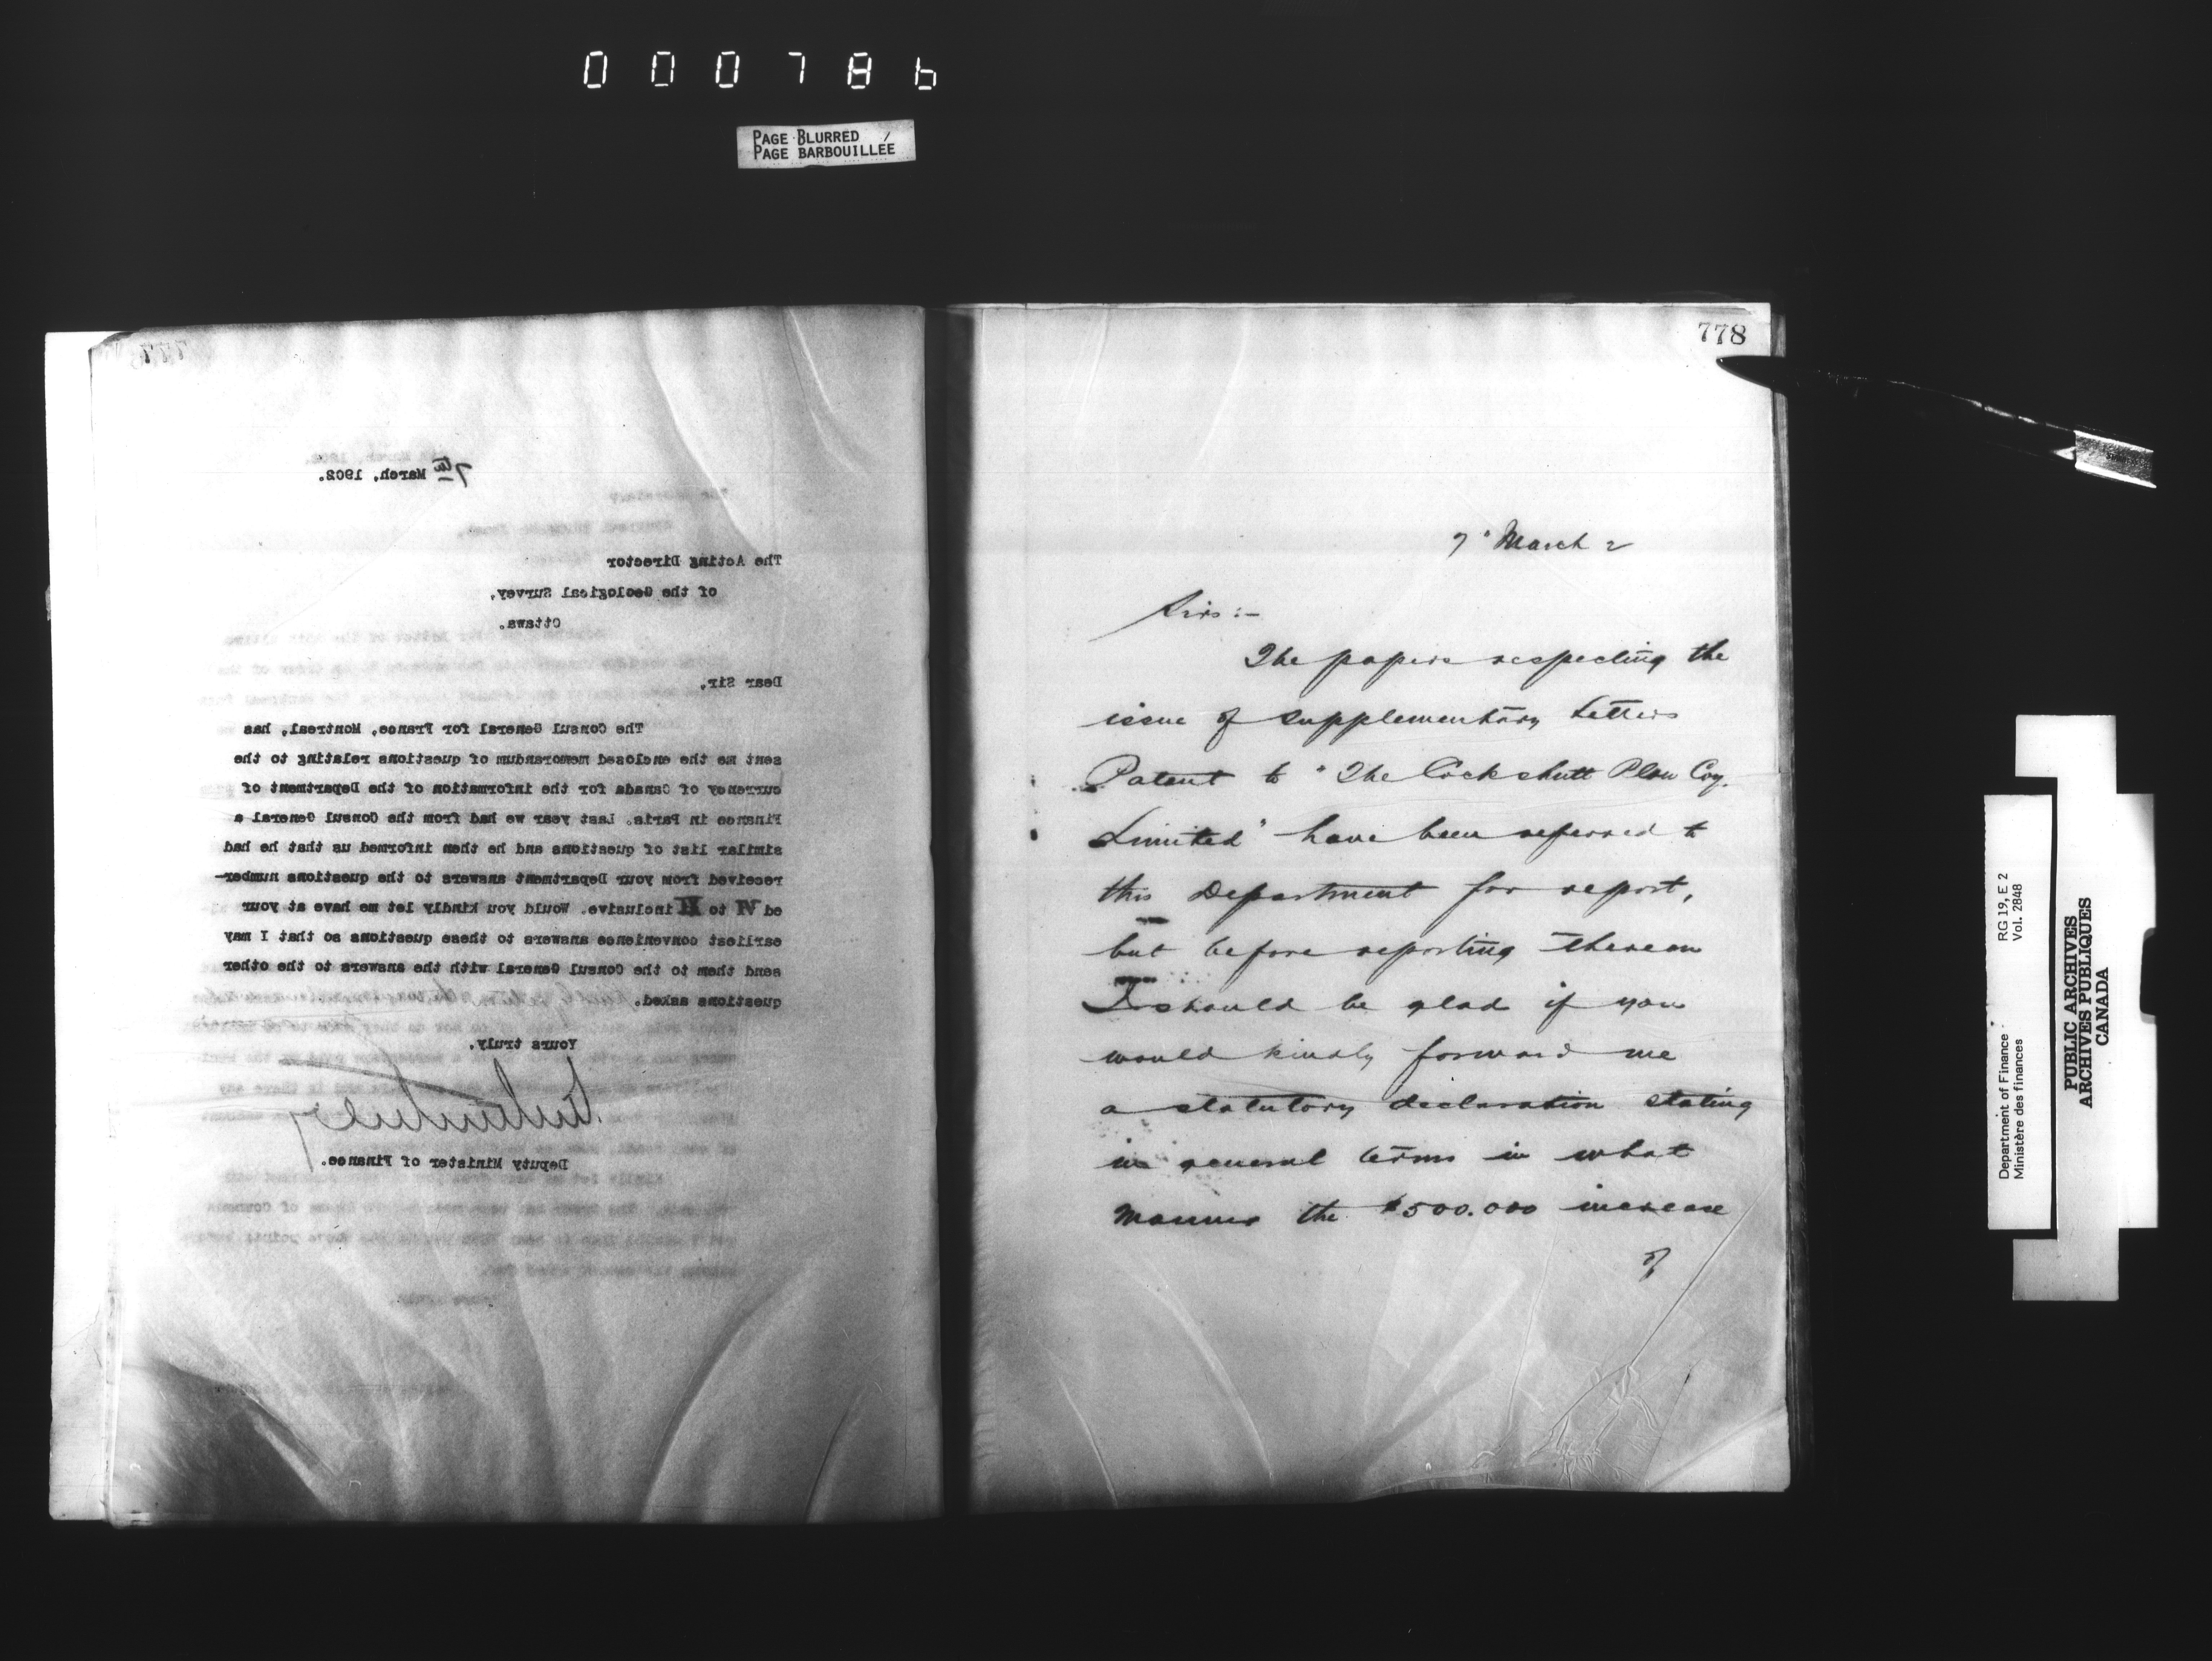 000786
PAGE BLURRED
PAGE BARBOUILLÉE
7th March, 1902.
The Acting Director
of the Geological Survey,
Ottawa.
Dear Sir,
The Consul General for France, Montreal, has
sent me the enclosed memorandum of questions relating to the
currency of Canada for the information of the Department of
Finance in Paris. Last year we had from the Consul General a
similar list of questions and he then informed us that he had
received from your Department answers to the questions number-
ed VI to XI inclusive. Would you kindly let me have at your
earliest convenience answers to these questions so that I may
send them to the Consul General with the answers to the other
questions asked.
Yours truly,
Deputy Minister of Finance.
778
7" March 2
Sirs :-
The papers respecting the
issue of supplementary Letters
Patent to "The Cockshutt Plow Coy.
Limited" have been referred to
this Department for report,
but before reporting thereon
I should be glad if you
would kindly forward me
a statutory declaration stating
in general terms in what
manner the $500.000 increase
of
Department of Finance
Ministère des finances
RG 19, E 2
Vol. 2848
PUBLIC ARCHIVES
ARCHIVES PUBLIQUES
CANADA